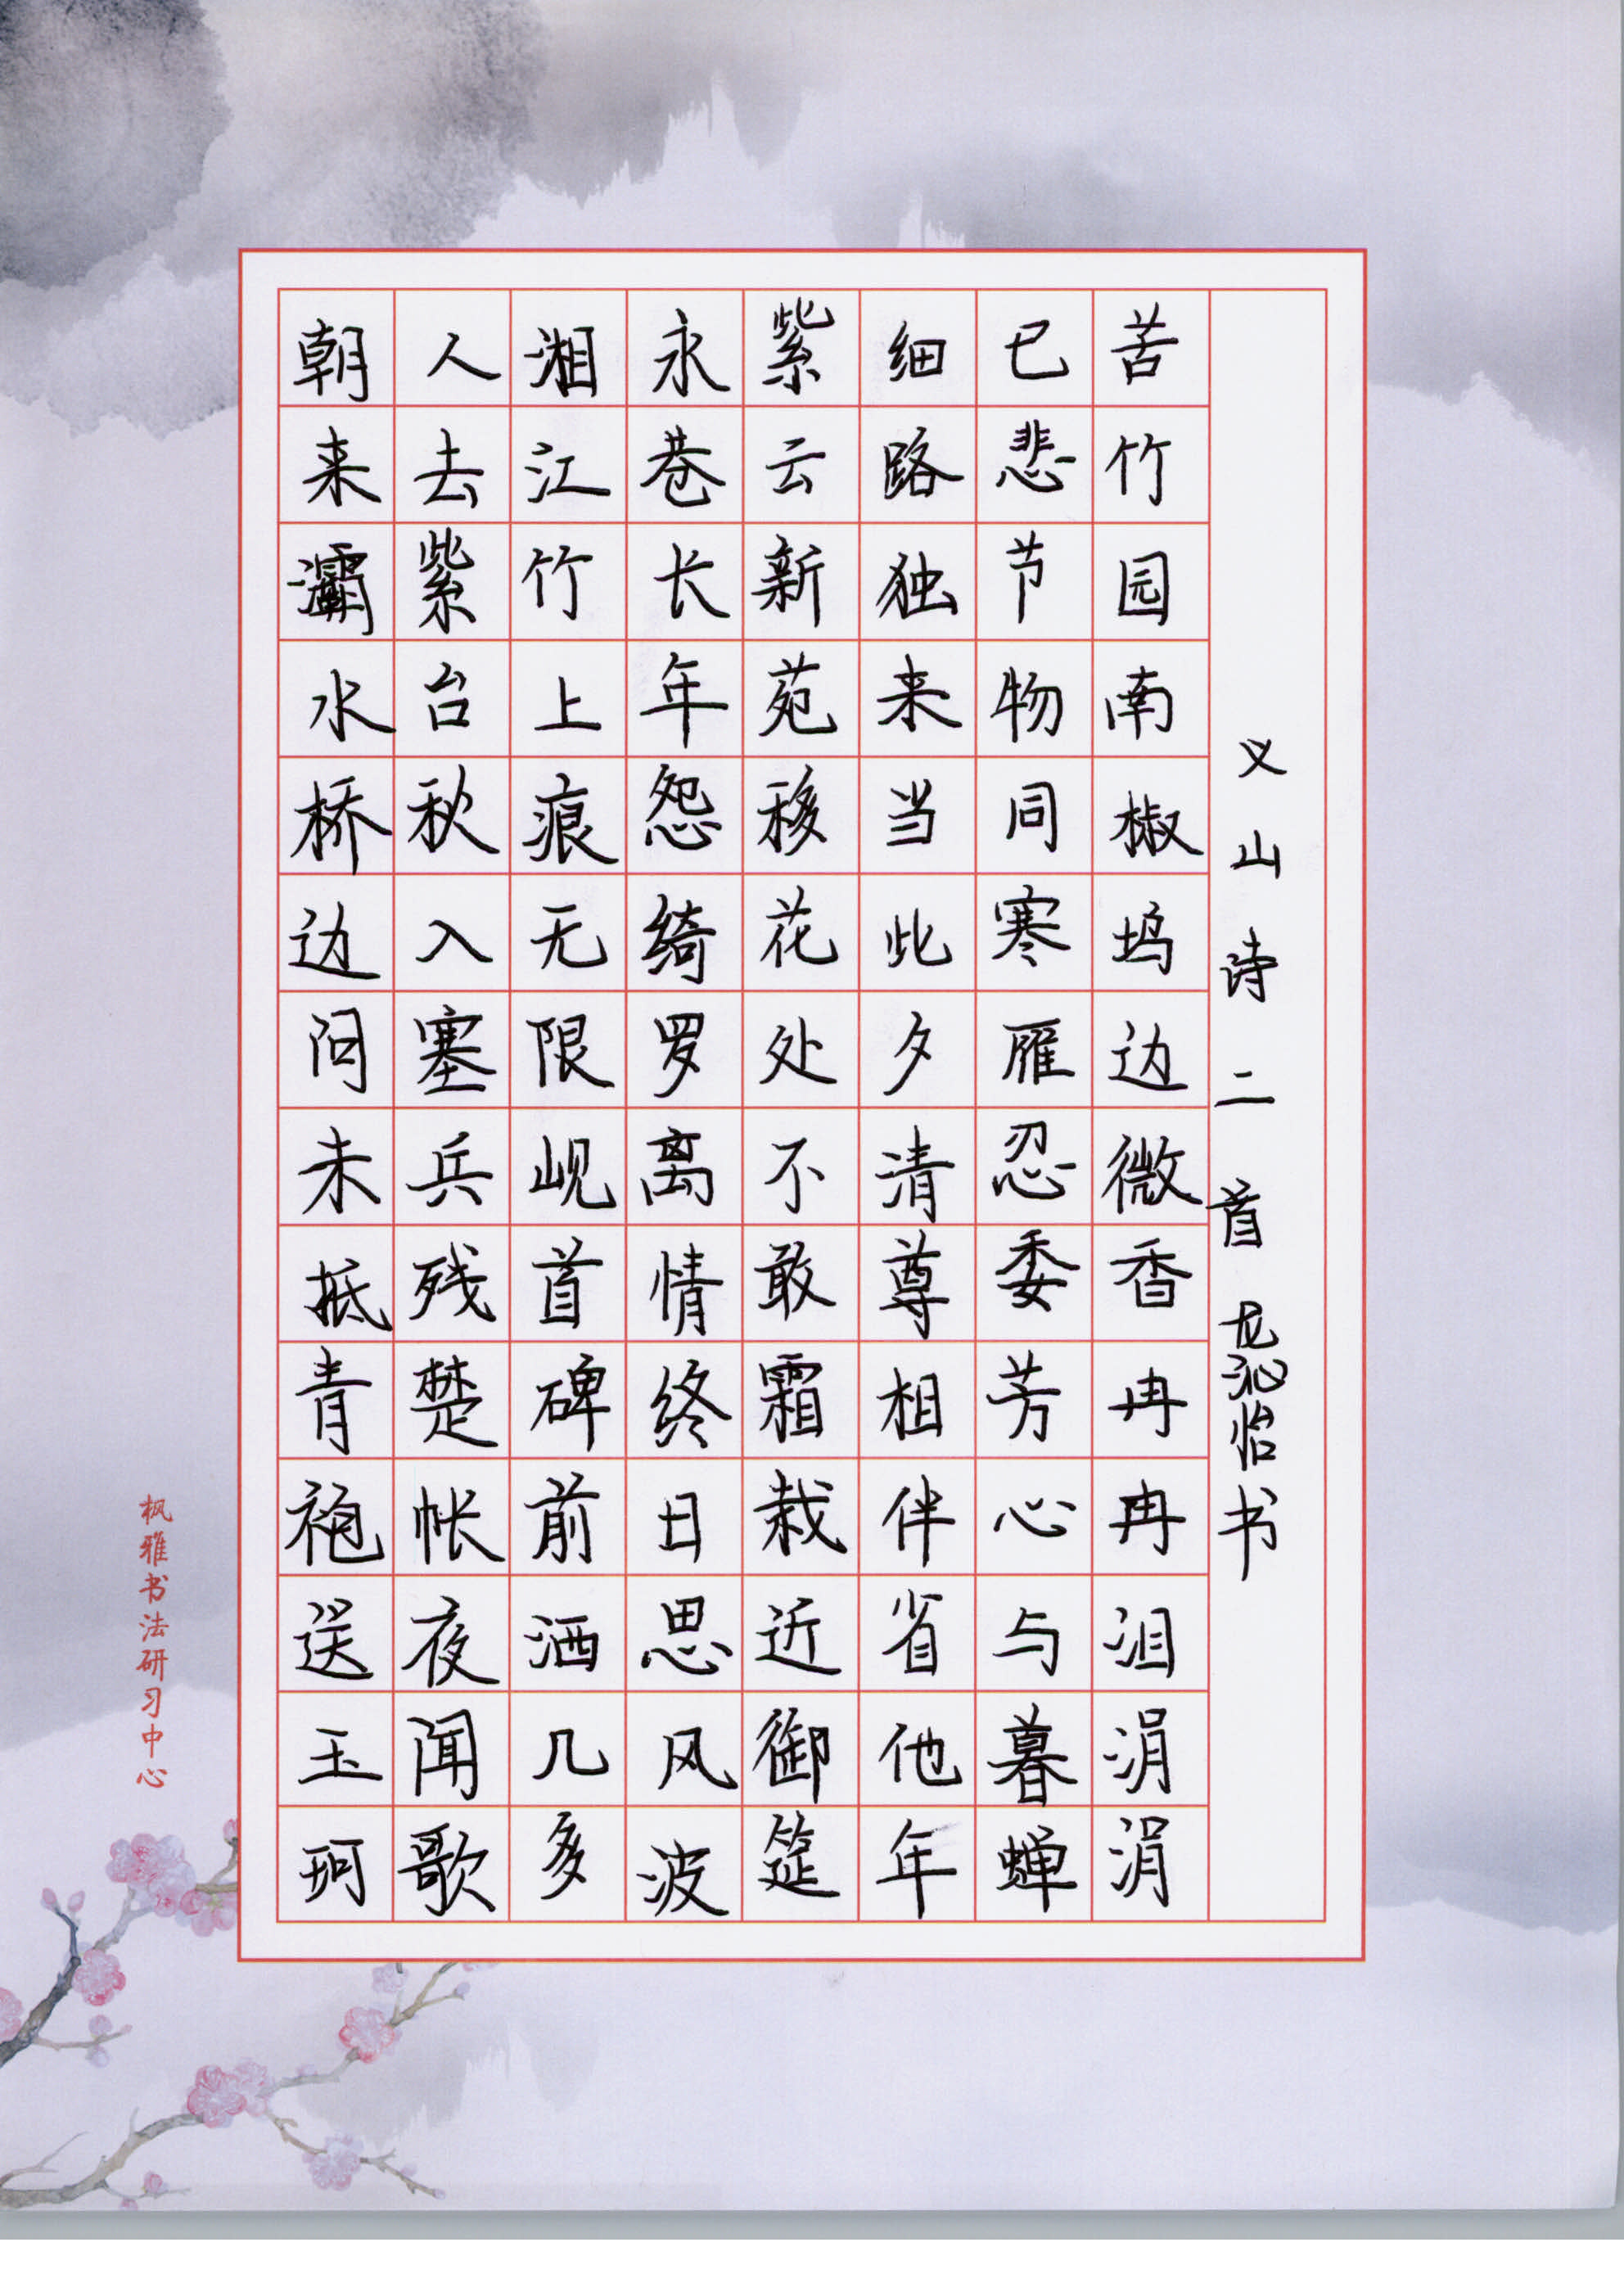 义山诗二首 龙沁怡书
苦竹园南椒坞边微香冉冉泪涓涓
已悲节物同寒雁忍委芳心与暮蝉
细路独来当此夕清尊相伴省他年
紫云新苑移花处不敢霜栽近御筵
永巷长年怨绮罗离情终日思风波
湘江竹上痕无限岘首碑前洒几多
人去紫台秋入塞兵残楚帐夜闻歌
朝来灞水桥边问未抵青袍送玉珂
枫雅书法研习中心